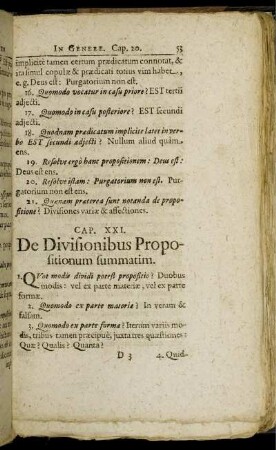 IN GENERE. Cap. 20. 53
implicitè tamen certum prædicatum connotat, &
ita simul copulæ & prædicati totius vim habet,
e. g. Deus est: Purgatorium non est.
16. Quomodo vocatur in casu priore? EST tertii
adjecti.
17. Quomodo in casu posteriore? EST secundi
adjecti.
18. Quodnam prædicatum implicite latet in ver-
bo EST secundi adjecti? Nullum aliud quàm
ens.
19. Resolve ergò hanc propositionem: Deus est:
Deus est ens.
20. Resolve istam: Purgatorium non est. Pur-
gatorium non est ens.
21. Quænam præterea sunt notanda de propo-
sitione? Divisiones variæ & affectiones.
CAP. XXI.
De Divisionibus Propo-
sitionum summatim.
1. QVot modis dividi potest propositio? Duobus
modis: vel ex parte materiæ, vel ex parte
formæ.
2. Quomodo ex parte materiæ? In veram &
falsam.
3. Quomodo ex parte formæ? Iterùm variis mo-
dis, tribus tamen præcipuè, juxta tres quæstiones:
Quæ? Qualis? Quanta?
D 3 4. Quid-